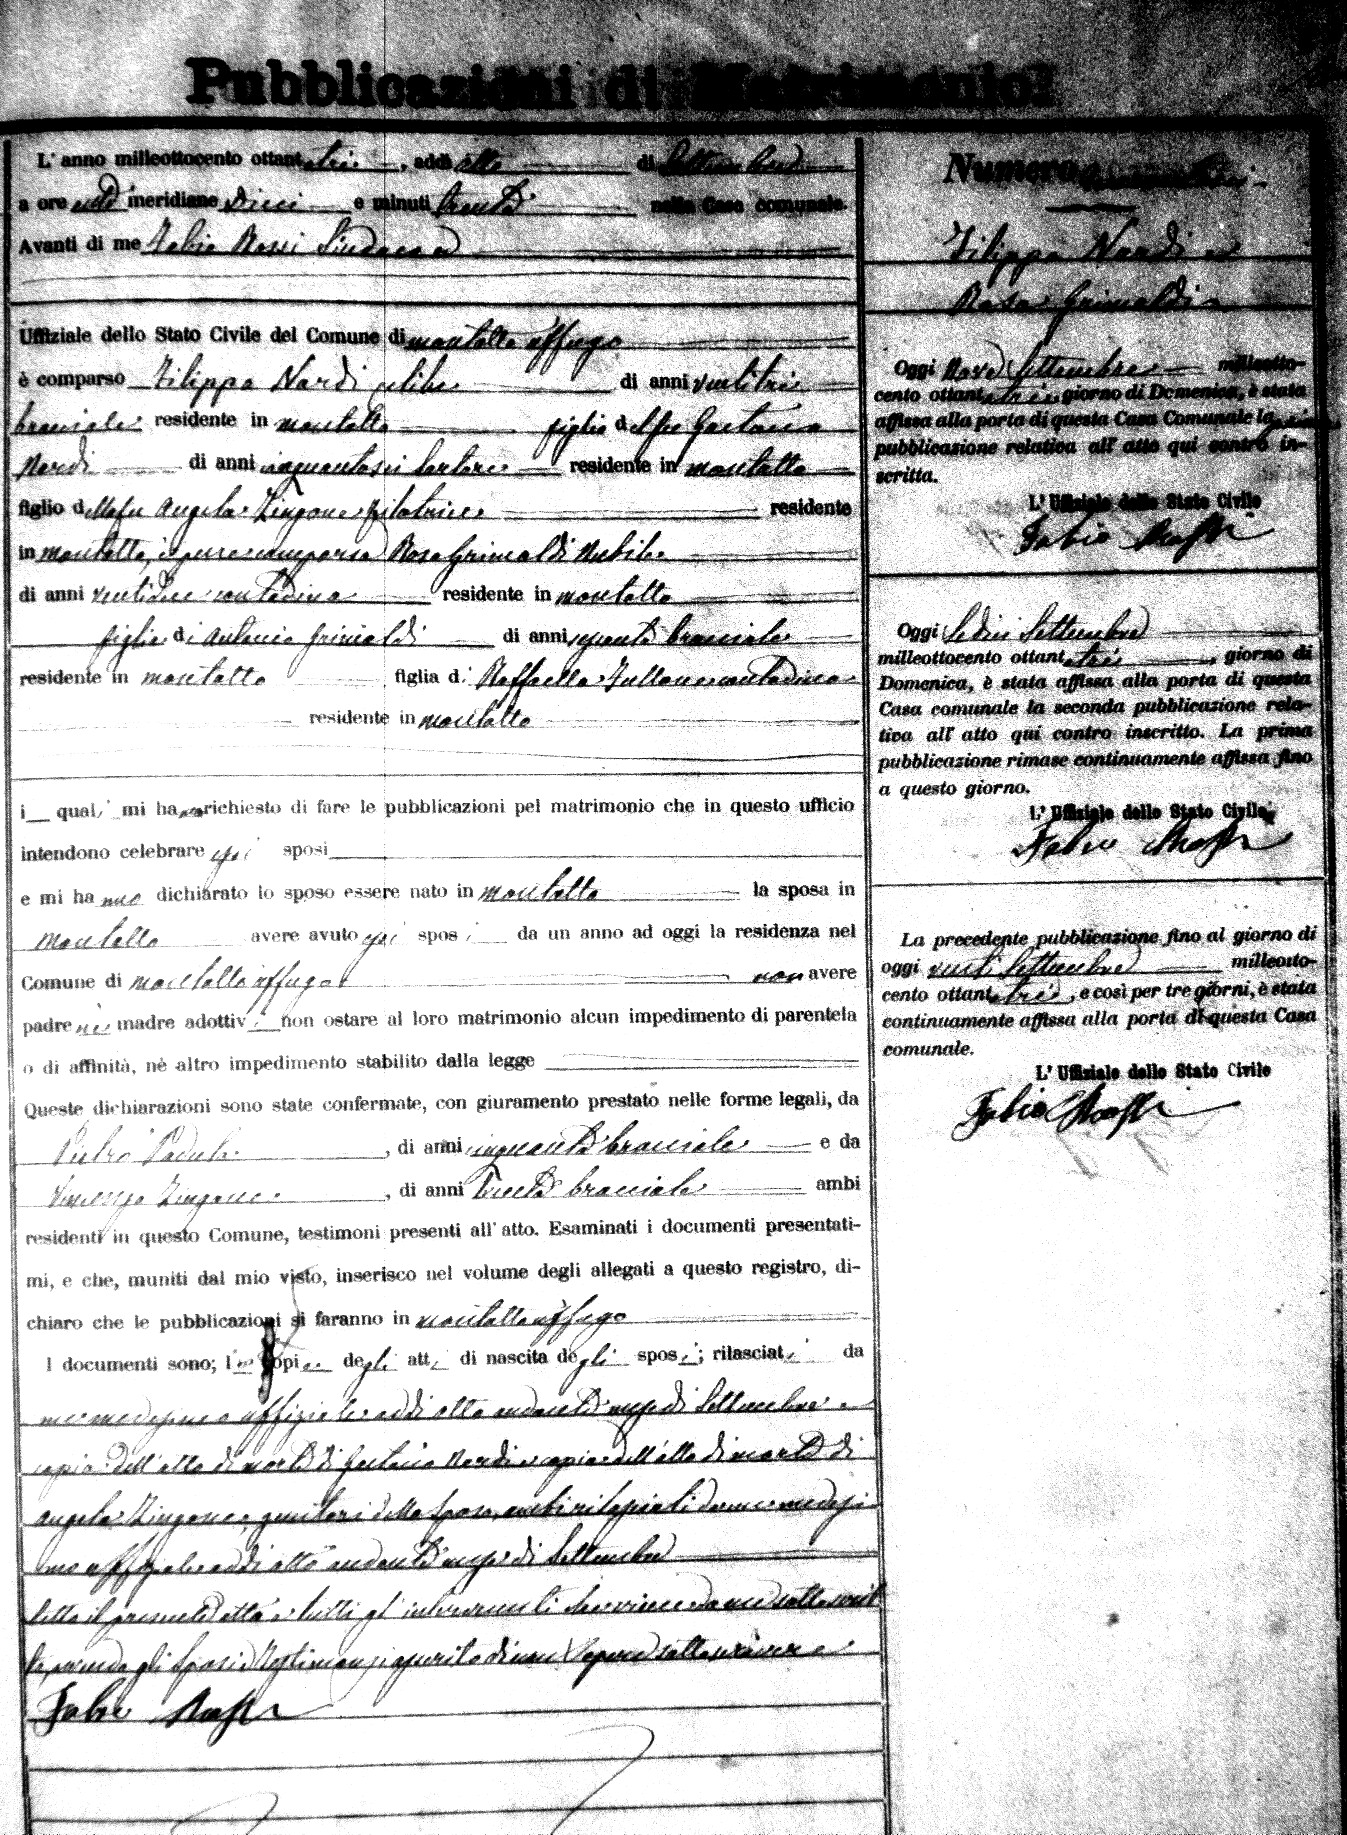 Pubblicazioni di Matrimonio
L'anno milleottocento ottantatrè, addì otto di Settembre
a ore anti meridiane Dieci e minuti trenta nella Casa comunale.
Avanti di me Fabio Rossi Sindaco
Uffiziale dello Stato Civile del Comune di montalto uffugo
è comparso Filippo Nardi celibe di anni ventitre
bracciale residente in montalto figlio del fu Gaetano
Nardi di anni cinquantasei residente in montalto
figlio della fu Angela Zingone filatrice residente
in montalto, è pure comparsa Rosa Grimaldi Nubile
di anni ventidue contadina residente in montalto
figlia di Antonio Grimaldi di anni bracciale
residente in montalto figlia di Raffaella contadina
residente in montalto
i quali mi hanno richiesto di fare le pubblicazioni pel matrimonio che in questo ufficio
intendono celebrare essi sposi
e mi hanno dichiarato lo sposo essere nato in montalto la sposa in
montalto avere avuto essi sposi da un anno ad oggi la residenza nel
Comune di montalto uffugo non avere
padre nè madre adottivi non ostare al loro matrimonio alcun impedimento di parentela
o di affinità, nè altro impedimento stabilito dalla legge
Queste dichiarazioni sono state confermate, con giuramento prestato nelle forme legali, da
Pietro Padula, di anni cinquanta bracciale e da
Vincenzo Zingone, di anni trenta bracciale ambi
residenti in questo Comune, testimoni presenti all'atto. Esaminati i documenti presentati-
mi, e che, muniti dal mio visto, inserisco nel volume degli allegati a questo registro, di-
chiaro che le pubblicazioni si faranno in montalto uffugo
I documenti sono; le copie degli atti di nascita degli sposi; rilasciati da
me medesimo uffiziale addì otto andante mese di Settembre
copia dell'atto di morte di Gaetano Nardi e copia dell'atto di morte di
Angela Zingone, genitori dello sposo, ambi rilasciati da me medesi
mo uffiziale addì otto andante mese di Settembre
Letto il presente atto a tutti gl'intervenuti si è da me sottoscrit
to, avendo gli sposi e testimoni asserito di non sapere sottoscrivere
Fabio Rossi
Numero
Filippo Nardi e
Rosa Grimaldi
Oggi Nove Settembre milleotto-
cento ottantatrè giorno di Domenica, è stata
affissa alla porta di questa Casa Comunale la prima
pubblicazione relativa all'atto qui contro in-
scritta.
L'Uffiziale dello Stato Civile
Fabio Rossi
Oggi Sedici Settembre
milleottocento ottantatrè, giorno di
Domenica, è stata affissa alla porta di questa
Casa comunale la seconda pubblicazione rela-
tiva all'atto qui contro inscritto. La prima
pubblicazione rimase continuamente affissa fino
a questo giorno.
L'Uffiziale dello Stato Civile
Fabio Rossi
La precedente pubblicazione fino al giorno di
oggi venti Settembre milleotto-
cento ottantatrè, e così per tre giorni, è stata
continuamente affissa alla porta di questa Casa
comunale.
L'Uffiziale dello Stato Civile
Fabio Rossi